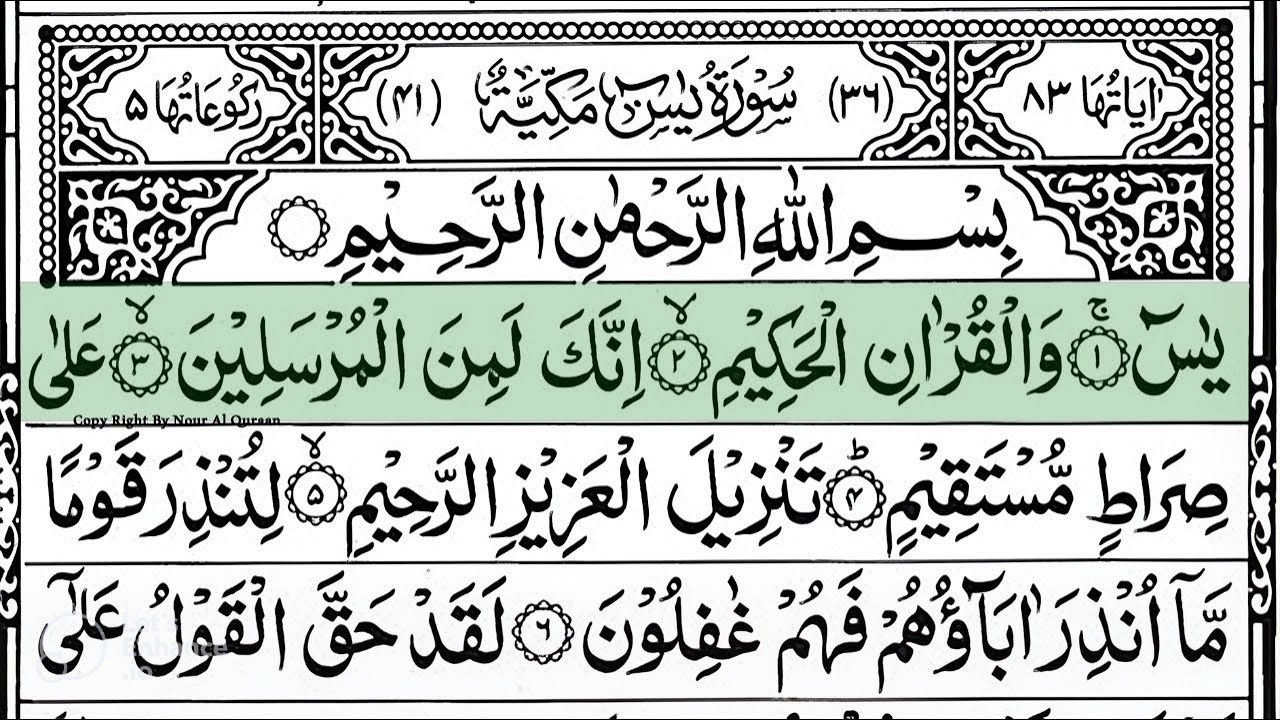 اٰيَاتُهَا ٨٣ (٣٦) سُوْرَةُ يٰسٓ مَكِّيَّةٌ (٤١) رُكُوْعَاتُهَا ٥
بِسْمِ اللّٰهِ الرَّحْمٰنِ الرَّحِيْمِ
يٰسٓ ۚ ١ وَالْقُرْاٰنِ الْحَكِيْمِ ۙ ٢ اِنَّكَ لَمِنَ الْمُرْسَلِيْنَ ۙ ٣ عَلٰى
Copy Right By Nour Al Quraan
صِرَاطٍ مُّسْتَقِيْمٍ ؕ ۴ تَنْزِيْلَ الْعَزِيْزِ الرَّحِيْمِ ۙ ۵ لِتُنْذِرَ قَوْمًا
مَّآ اُنْذِرَ اٰبَآؤُهُمْ فَهُمْ غٰفِلُوْنَ ۶ لَقَدْ حَقَّ الْقَوْلُ عَلٰٓى
Let's
Enhance
.io